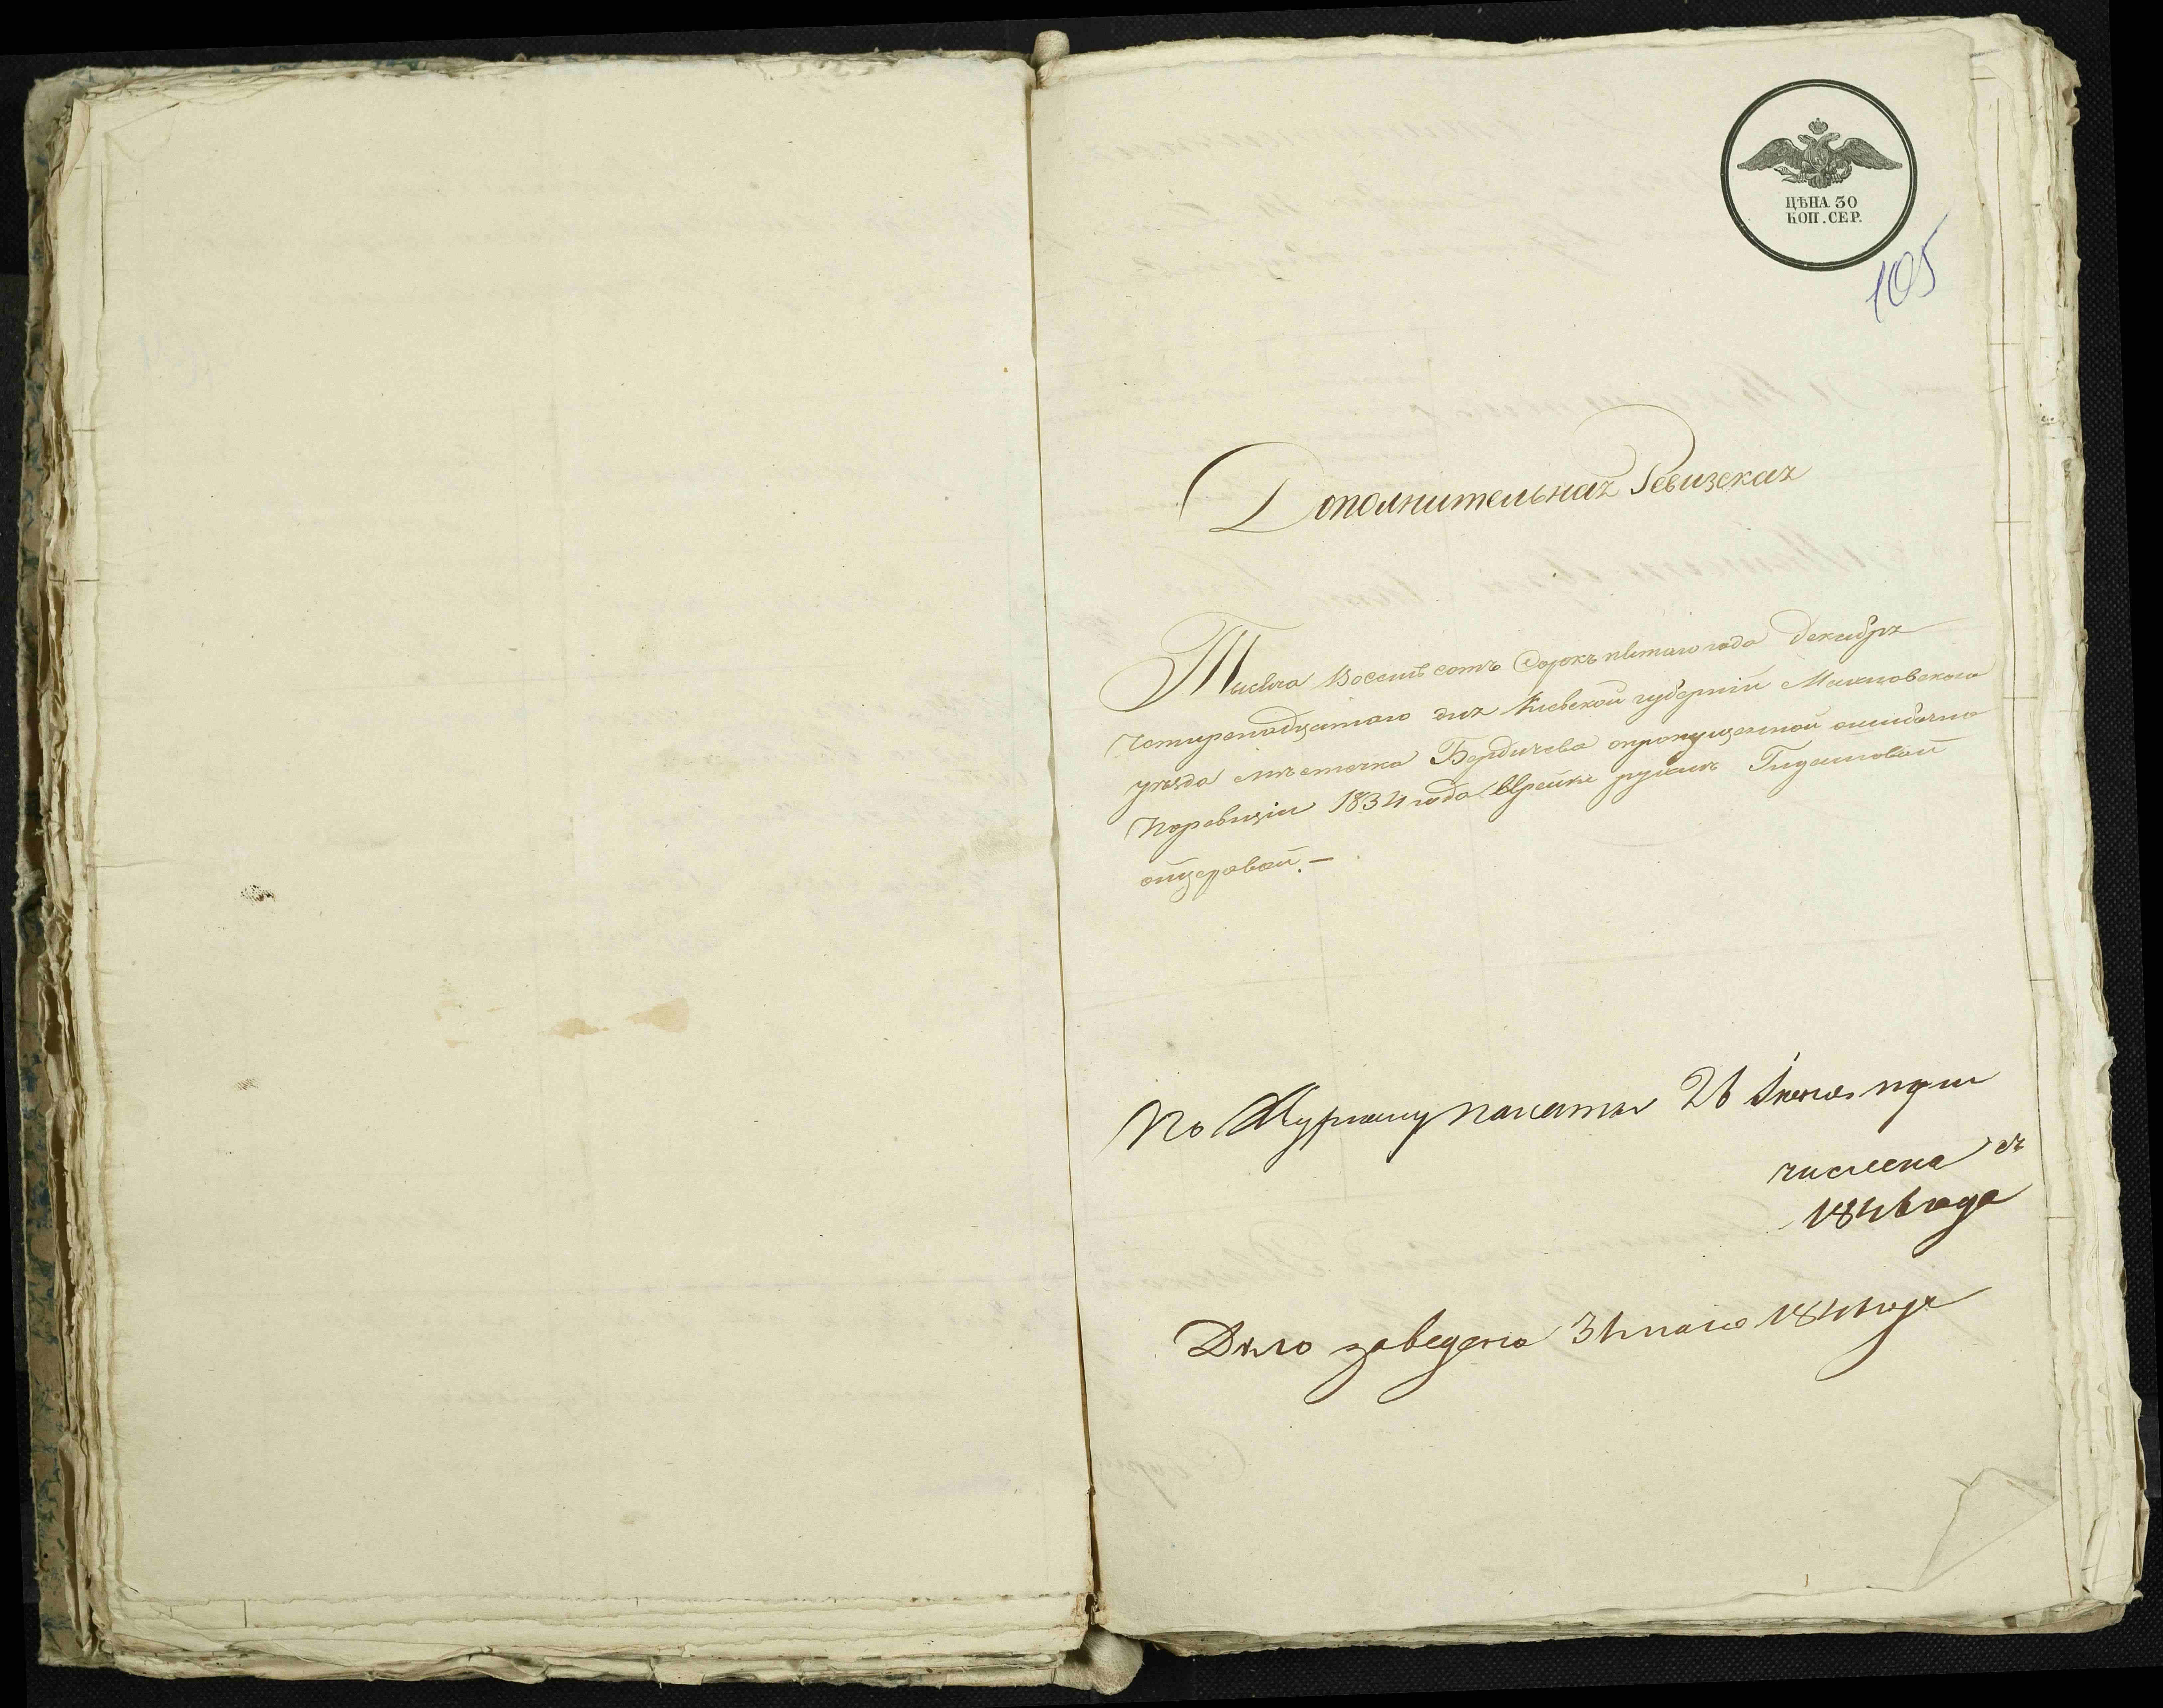 ЦѢНА 30
КОП. СЕР.
105
Дополнительная Ревизская
Тысяча Восемь сотъ Сорокъ пятаго года Декабря
Четыренадцатаго дня Киевской губерніи Махновского
уѣзда мѣстечка Бердичева опропущенной ошибочно
Поревизіи 1834 года Еврейке
ойцеровой. —
По Журналу палаты 26 Іюня при
числена съ
1846 года
Дѣло заведено 31 мая 1846 года